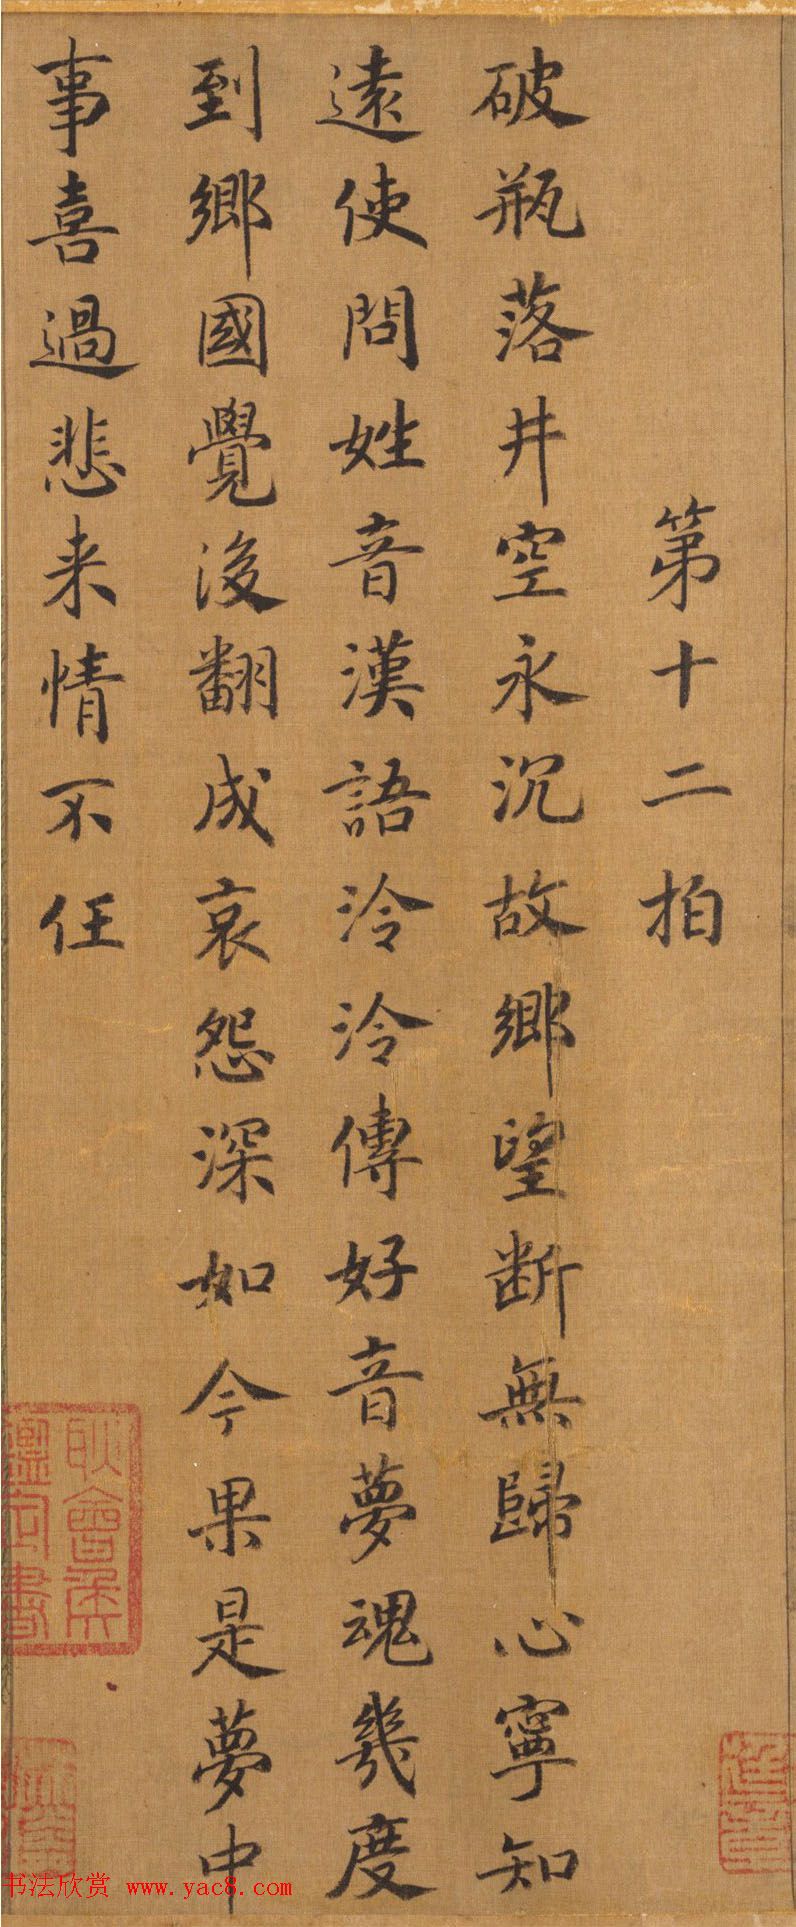 第十二拍
破瓶落井空永沉故鄉望斷無歸心寧知
遠使問姓音漢語泠泠傳好音夢魂幾度
到鄉國覺後翻成哀怨深如今果是夢中
事喜過悲来情不任
耿會侯
鑑定書
书法欣赏 www.yac8.com